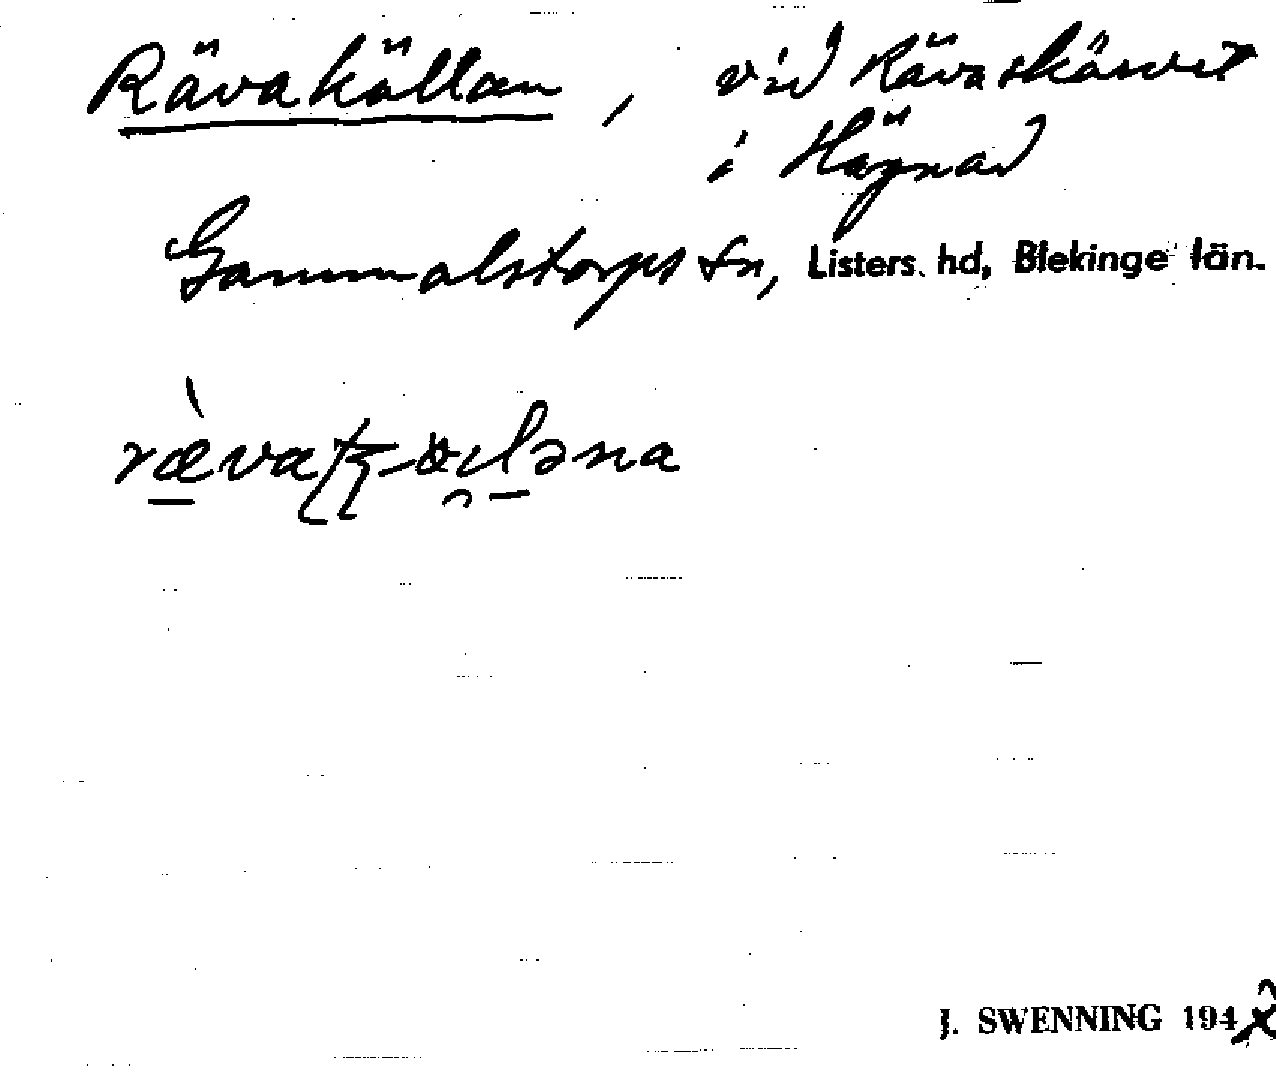 Rävakällan, vid Rävaskärvet
i Högnad
Gammalstorps sn, Listers hd, Blekinge län.
J. SWENNING 194